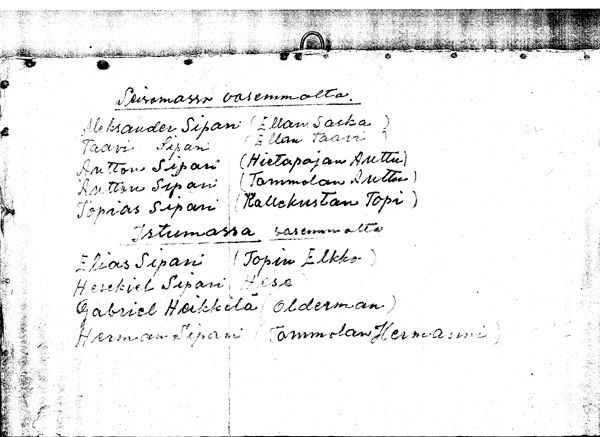 Seisomassa vasemmalta.
Aleksander Sipari (Ellan Saska)
Taavi Sipari (Ellan Taavi)
Anttou Sipari (Hietapajan Anttu)
Anttou Sipari (Tammolan Anttu)
Topias Sipari (Kallekustan Topi)
Istumassa vasemmalta
Elias Sipari (Topin Elkko)
Hesekiel Sipari (Hese
Gabriel Heikkilä (Olderman)
Herman Sipari (Tammolan Hermanni)